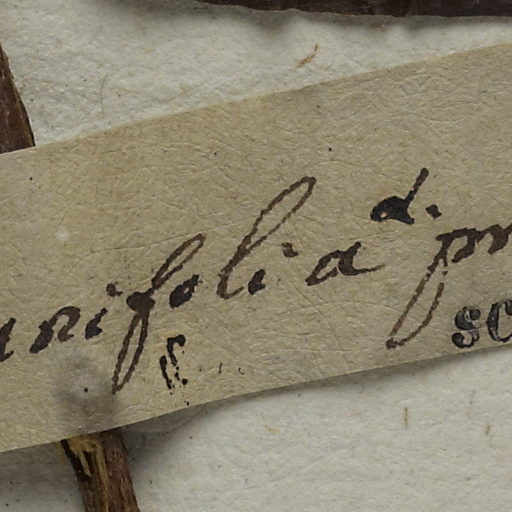 unifolia d. pm
sc